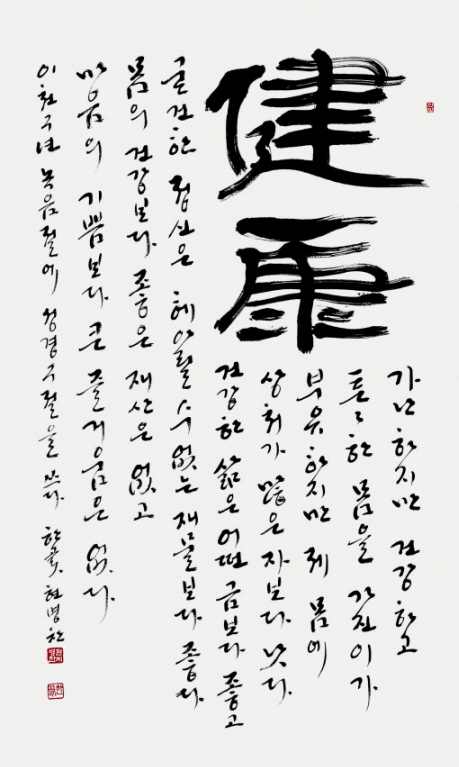 健康
가난하지만 건강하고
튼튼한 몸을 가진이가
부유하지만 제 몸에
상처가 많은 자보다 낫다.
건강한 삶은 어떤 금보다 좋고
굳건한 정신은 헤아릴 수 없는 재물보다 좋다.
몸의 건강보다 좋은 재산은 없고
마음의 기쁨보다 큰 즐거움은 없다.
이천구년 녹음절에 성경구절을 쓰다